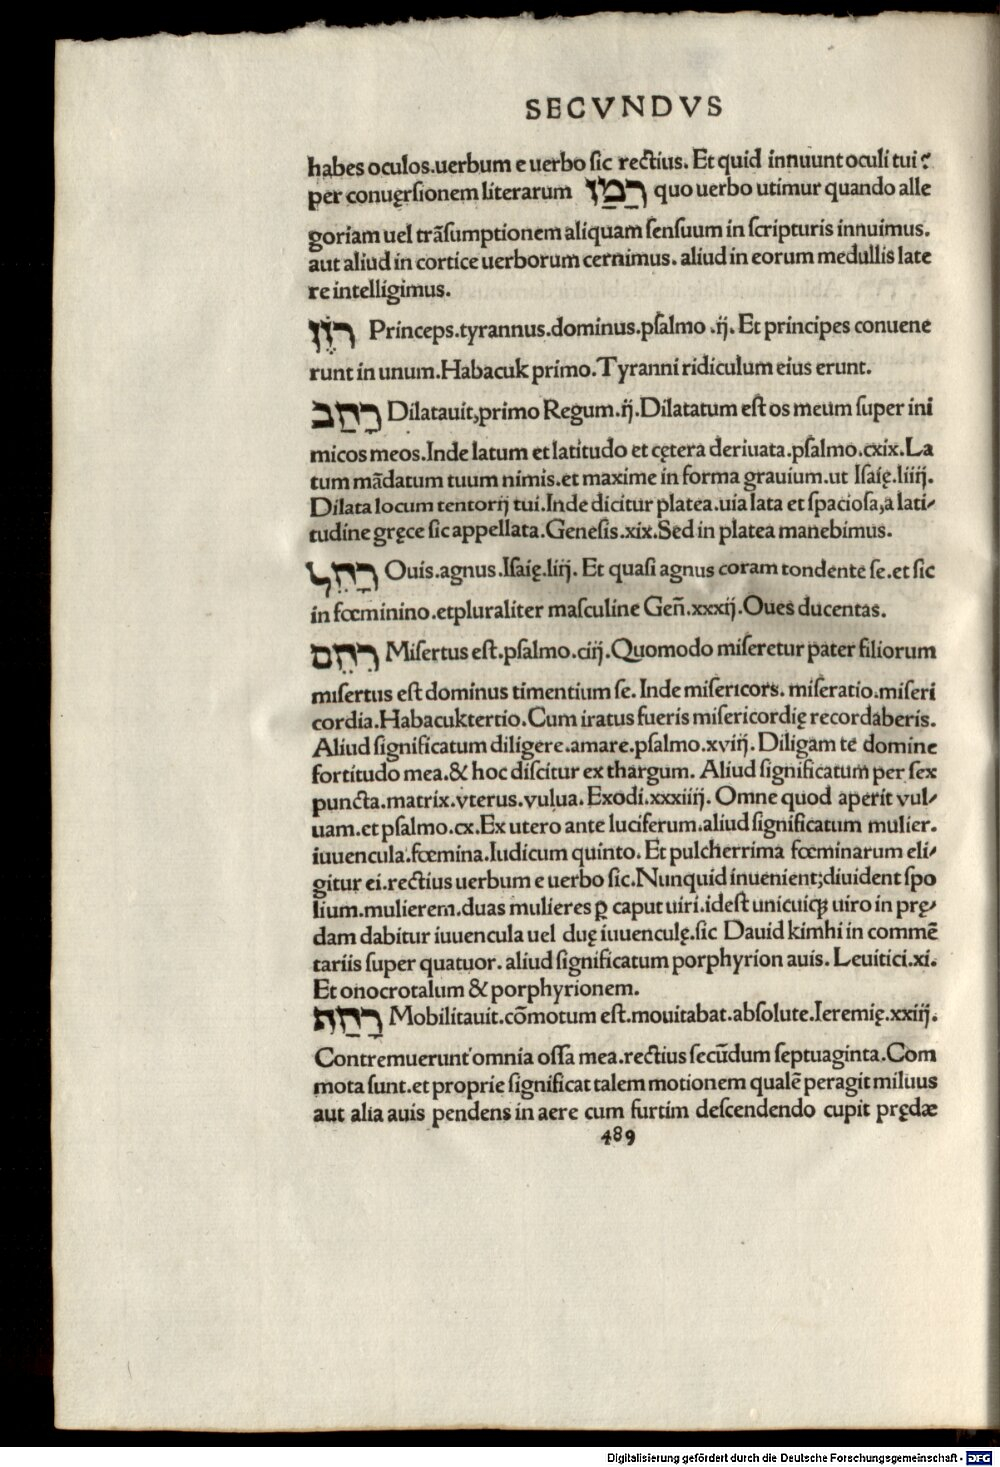 SECVNDVS
habes oculos.uerbum e uerbo sic rectius. Et quid innuunt oculi tui?
per conuęrsionem literarum רָמַז quo uerbo utimur quando alle
goriam uel trãsumptionem aliquam sensuum in scripturis innuimus.
aut aliud in cortice uerborum cernimus. aliud in eorum medullis late
re intelligimus.
רוֹזֵן Princeps.tyrannus.dominus.psalmo .ij. Et principes conuene
runt in unum.Habacuk primo.Tyranni ridiculum eius erunt.
רָחַב Dilatauit,primo Regum.ij.Dilatatum est os meum super ini
micos meos.Inde latum et latitudo et cętera deriuata.psalmo.cxix.La
tum mãdatum tuum nimis.et maxime in forma grauium.ut Isaię.liiij.
Dilata locum tentorij tui.Inde dicitur platea.uia lata et spaciosa,a lati⸗
tudine gręce sic appellata.Genesis.xix.Sed in platea manebimus.
רָחֵל Ouis.agnus.Isaię.liij. Et quasi agnus coram tondente se.et sic
in fœminino.etpluraliter masculine Geñ.xxxij.Oues ducentas.
רִחֵם Misertus est.psalmo.ciij.Quomodo miseretur pater filiorum
misertus est dominus timentium se. Inde misericors. miseratio.miseri
cordia.Habacuktertio.Cum iratus fueris misericordię recordaberis.
Aliud significatum diligere.amare.psalmo.xviij.Diligam te domine
fortitudo mea.& hoc discitur ex thargum. Aliud significatum per sex
puncta.matrix.vterus.vulua.Exodi.xxxiiij. Omne quod aperit vul⸗
uam.et psalmo.cx.Ex utero ante luciferum.aliud significatum mulier.
iuuencula.fœmina.Iudicum quinto. Et pulcherrima fœminarum eli⸗
gitur ei.rectius uerbum e uerbo sic.Nunquid inuenient;diuident spo
lium.mulierem.duas mulieres ꝑ caput uiri.idest unicuiqꝫ uiro in prę⸗
dam dabitur iuuencula uel duę iuuenculę.sic Dauid kimhi in commẽ
tariis super quatuor. aliud significatum porphyrion auis. Leuitici.xi.
Et onocrotalum & porphyrionem.
רָחַת Mobilitauit.cõmotum est.mouitabat.absolute.Ieremię.xxiij.
Contremuerunt omnia ossa mea.rectius secũdum septuaginta.Com
mota sunt.et proprie significat talem motionem qualẽ peragit miluus
aut alia auis pendens in aere cum furtim descendendo cupit prędæ
489
Digitalisierung gefördert durch die Deutsche Forschungsgemeinschaft - DFG